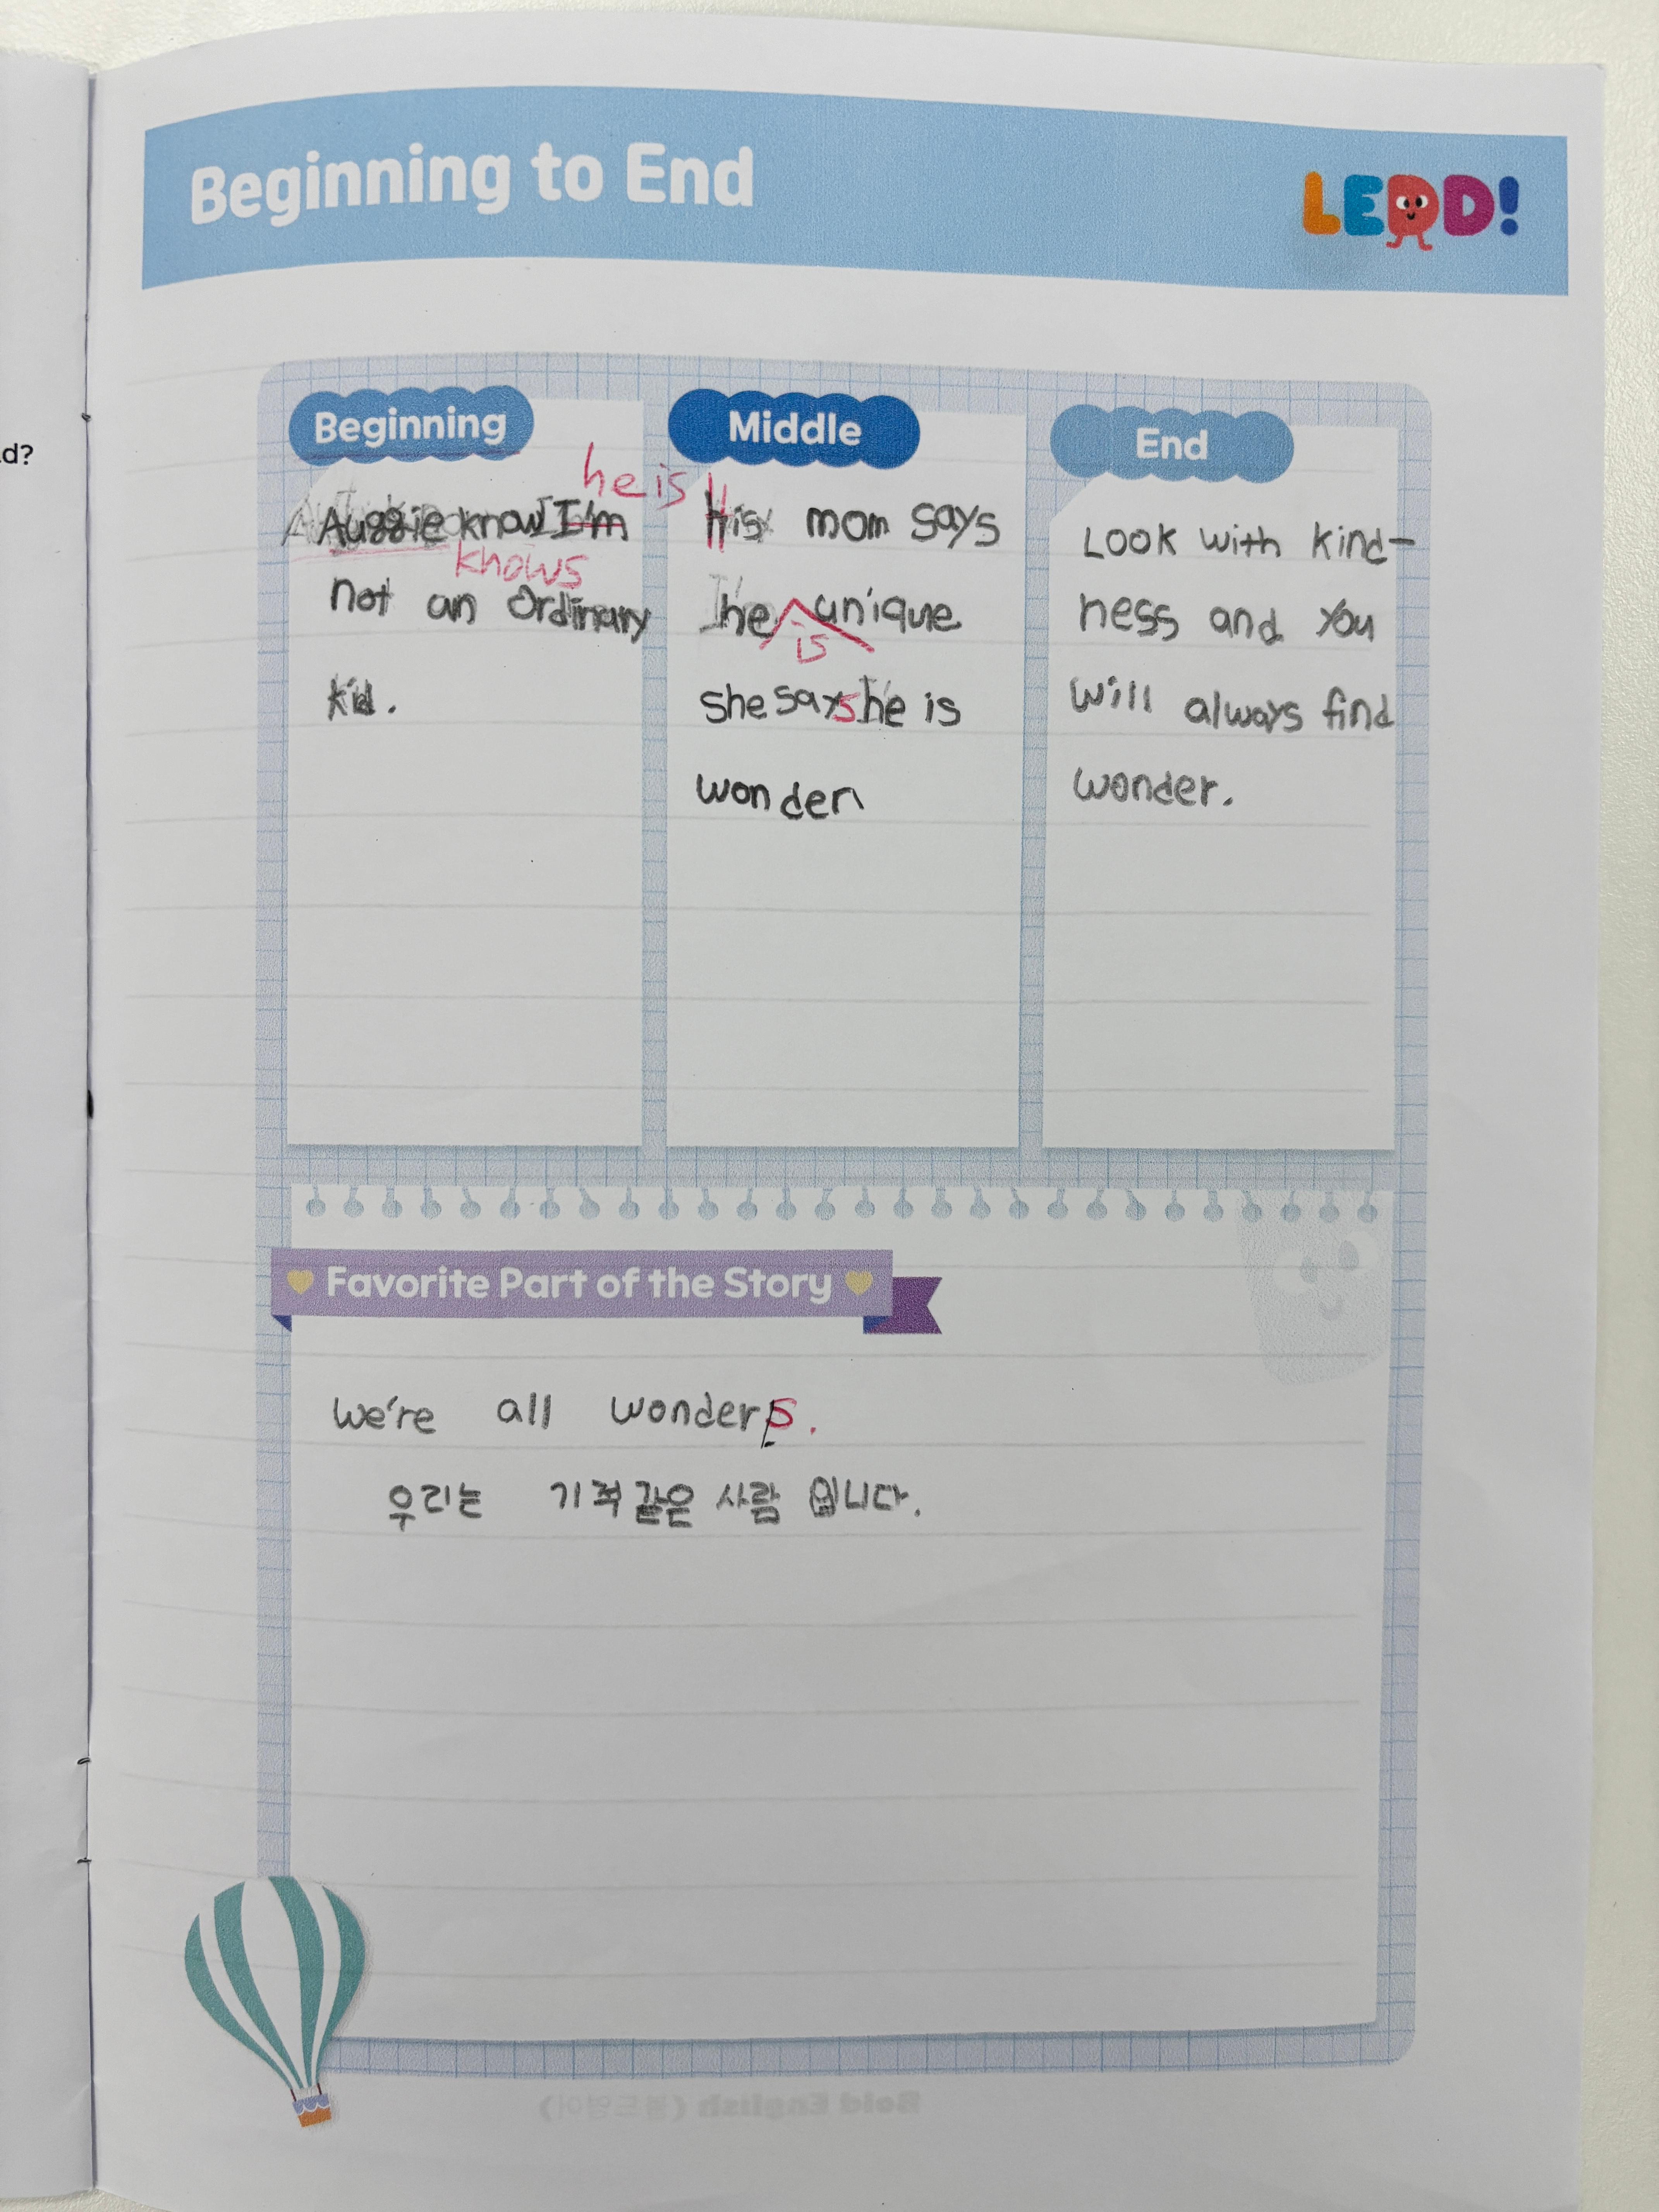 Beginning to End
LEAD!
d?
Beginning
he is
Auggie know I'm
knows
not an ordinary
kid.
Middle
His mom says
he unique
is
she says he is
wonder
End
Look with kind-
ness and you
will always find
wonder.
Favorite Part of the Story
we're all wonders.
우리는 기적같은 사람 입니다.